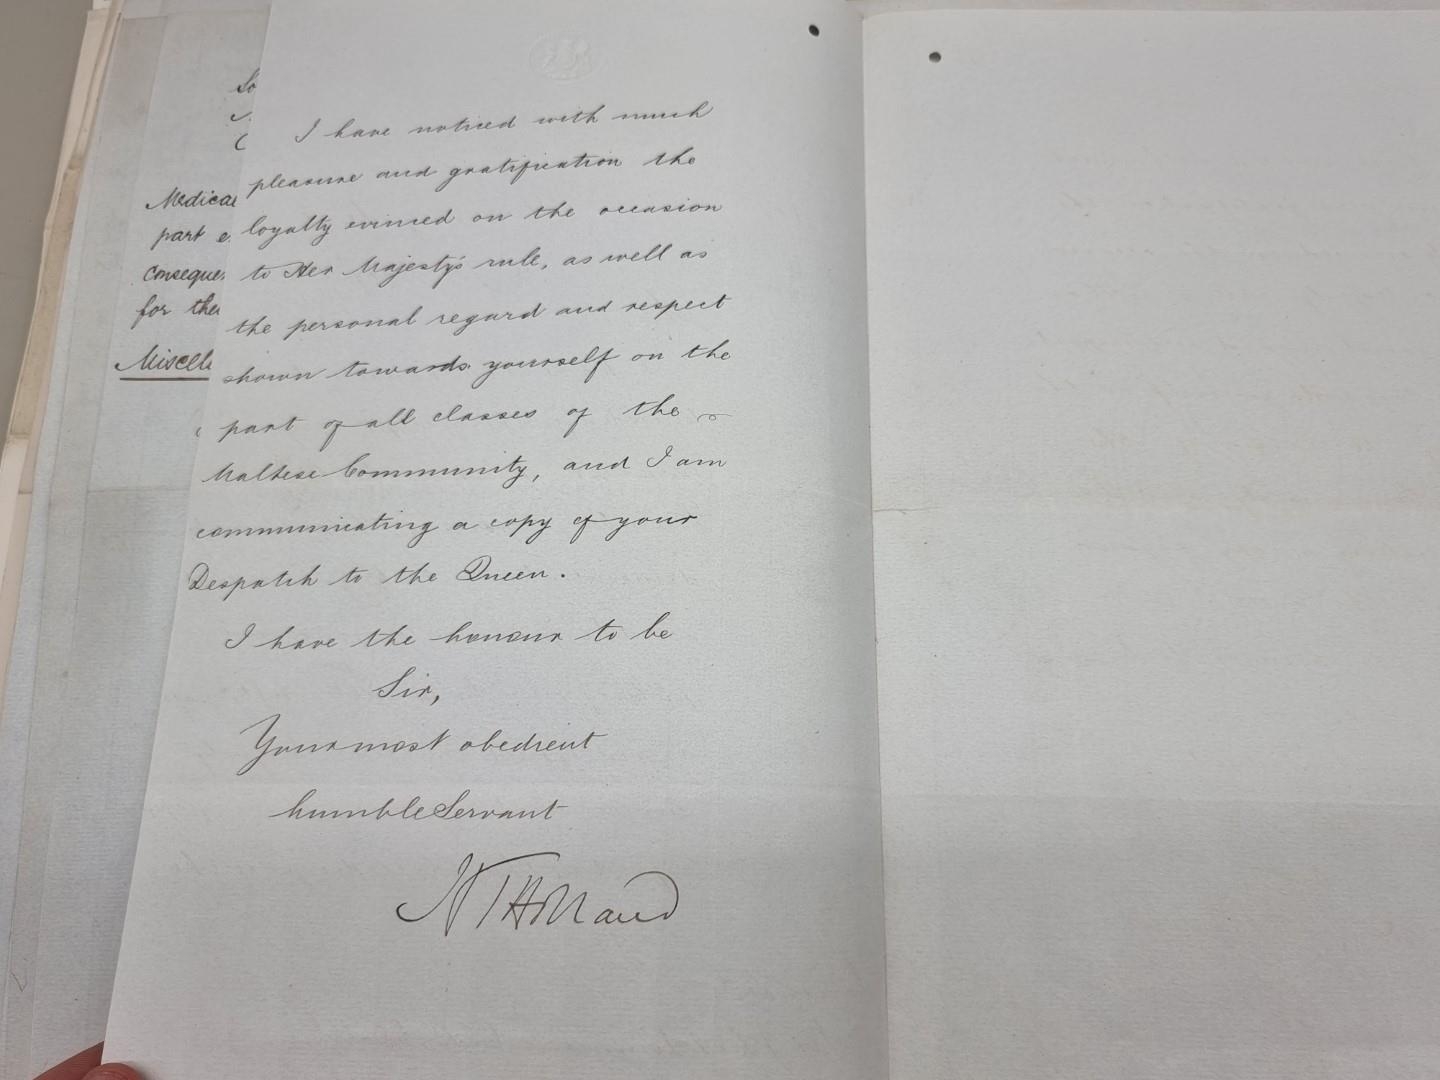 So
Medical
part e
conseque
for the
Miscell
I have noticed with much
pleasure and gratification the
loyalty evinced on the occasion
to Her Majesty's rule, as well as
the personal regard and respect
shown towards yourself on the
part of all classes of the
Maltese Community, and I am
communicating a copy of your
Despatch to the Queen.
I have the honour to be
Sir,
Your most obedient
humble Servant
HTHolland